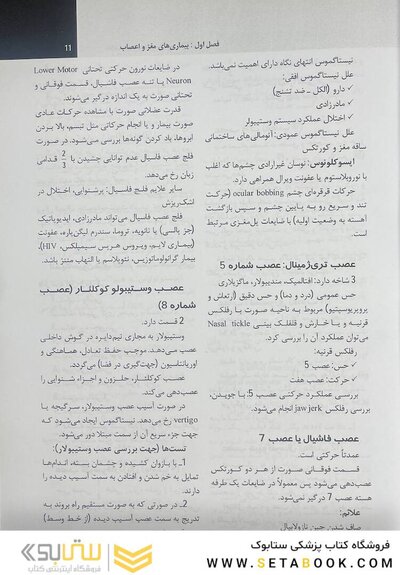 فصل اول : بیماری‌های مغز و اعصاب
11
نیستاگموس انتهای نگاه دارای اهمیت نمی‌باشد.
علل نیستاگموس افقی:
✓ دارو (الکل ـ ضد تشنج)
✓ مادرزادی
✓ اختلال عملکرد سیستم وستیبولر
علل نیستاگموس عمودی: آنومالی‌های ساختمانی
ساقه مغز و کورتکس
اپسوکلونوس: نوسان غیرارادی چشم‌ها که اغلب
با نوروبلاستوم یا عفونت ویرال همراهی دارد.
حرکات قرقره‌ای چشم ocular bobbing (حرکت
تند و سریع رو به پایین چشم و سپس بازگشت
آهسته به وضعیت اولیه) با ضایعات پل‌مغزی مرتبط
است.
عصب تری‌ژمینال: عصب شماره 5
3 شاخه دارد: افتالمیک، مندیبولار، ماگزیلاری
حس عمومی (درد و دما) و حس دقیق (ارتعاش و
پروپریوسپتیو) مربوط به ناحیه صورت با رفلکس
قرنیه و با خارش و قلقلک بینی Nasal tickle
می‌توان عملکرد آن را بررسی کرد.
رفلکس قرنیه:
✓ حس: عصب 5
✓ حرکت: عصب هفت
بررسی عملکرد حرکتی عصب 5: با جویدن،
بررسی رفلکس jaw jerk انجام می‌شود.
عصب فاشیال یا عصب 7
عمدتاً حرکتی است.
قسمت فوقانی صورت از هر دو کورتکس
عصب‌دهی می‌شود پس معمولاً در ضایعات یک طرفه
هسته عصب 7 درگیر نمی‌شود.
علائم:
صاف شدن چین نازولابیال
در ضایعات نورون حرکتی تحتانی Lower Motor
Neuron یا تنه عصب فاشیال، قسمت فوقانی و
تحتانی صورت به یک اندازه درگیر می‌شوند.
قدرت عضلانی صورت با مشاهده حرکات عادی
صورت بیمار و یا انجام حرکاتی مثل تبسم، بالا بردن
ابروها، باد کردن گونه‌ها بررسی می‌شود. در صورت
فلج عصب فاسیال عدم توانایی چشیدن با 2/3 قدامی
زبان رخ می‌دهد.
سایر علایم فلج فاسیال: پرشنوایی، اختلال در
اشک‌ریزش
فلج فاسیال می‌تواند مادرزادی، ایدیوپاتیک
(بلز پالسی) یا ثانویه، تروما، سندرم گیلن‌باره، عفونت
(بیماری لایم، ویروس هرپس سیمپلکس، HIV)،
بیمار گرانولوماتوزیس، نئوپلاسم یا التهاب مننژ باشد.
عصب وستیبولو کوکلئار (عصب
شماره 8)
2 قسمت دارد.
وستیبولار به مجاری نیم‌دایره در گوش داخلی
عصب می‌دهد. موجب حفظ تعادل، هماهنگی و
اوریانتاسیون (جهت‌گیری در فضا) می‌گردد.
عصب کوکلئار، حلزون و اجزاء شنوایی را
عصب‌دهی می‌کند.
در صورت آسیب عصب وستیبولار، سرگیجه یا
vertigo رخ می‌دهد. نیستاگموس ایجاد می‌شود که
جهت جزء سریع آن از سمت مبتلا دور می‌شود.
تست‌ها (جهت بررسی عصب وستیبولار):
1ـ با بازوان کشیده و چشمان بسته، اندام‌ها
تمایل به خم شدن و افتادن به سمت آسیب دیده را
دارند.
2ـ در صورتی که به صورت مستقیم راه بروند به
تدریج به سمت عصب آسیب دیده (از خط وسط)
فروشگاه کتاب پزشکی ستابوک
WWW.SETABOOK.COM
ستابوک
فروشگاه اینترنتی کتاب